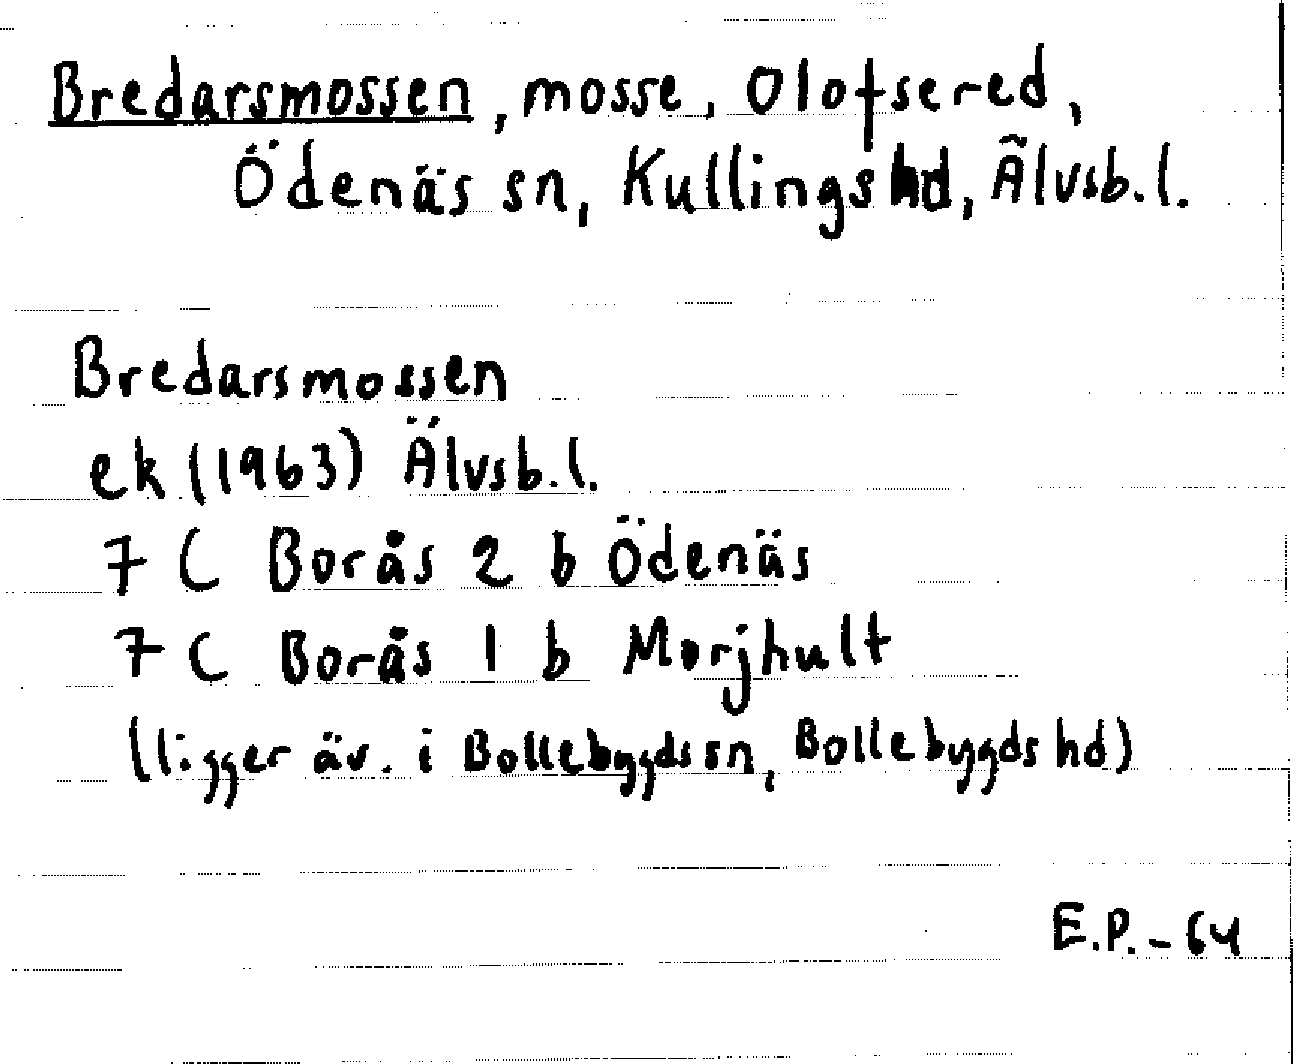 Bredarsmossen, mosse, Olofsered,
Ödenäs sn, Kullings hd, Älvsb. l.
Bredarsmossen
ek (1963) Älvsb. l.
7 C Borås 2 b Ödenäs
7 C Borås 1 b Morjhult
(ligger äv. i Bollebygds sn, Bollebygds hd)
E.P. - 64